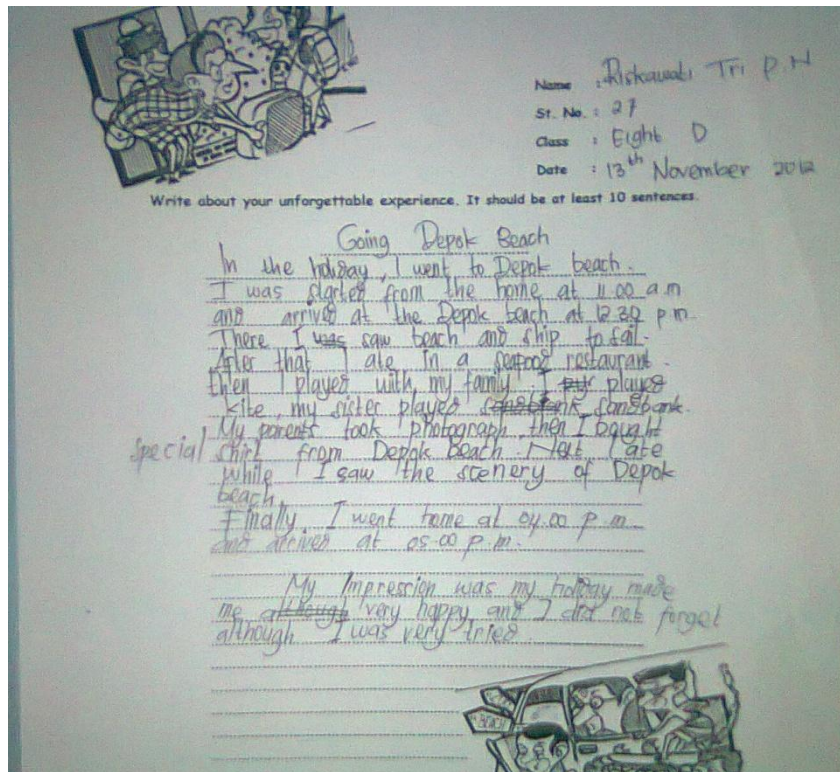 Name : Riskawati Tri P.N
St. No. : 27
Class : Eight D
Date : 13th November 2012
Write about your unforgettable experience. It should be at least 10 sentences.
Going Depok Beach
In the holiday, I went to Depok beach.
I was started from the home at 11.00 a.m
and arrived at the Depok beach at 12.30 p.m.
There I was saw beach and ship to sail.
After that I ate in a seafood restaurant.
then I played with my family. I played
kite, my sister played sandbank.
My parents took photograph, then I bought
special shirt from Depok Beach. Next I ate
while I saw the scenery of Depok
beach.
Finally, I went home at 04.00 p.m.
and arrived at 05.00 p.m.
My Impression was my holiday made
me although very happy and I did not forget
although I was very tried
BEACH